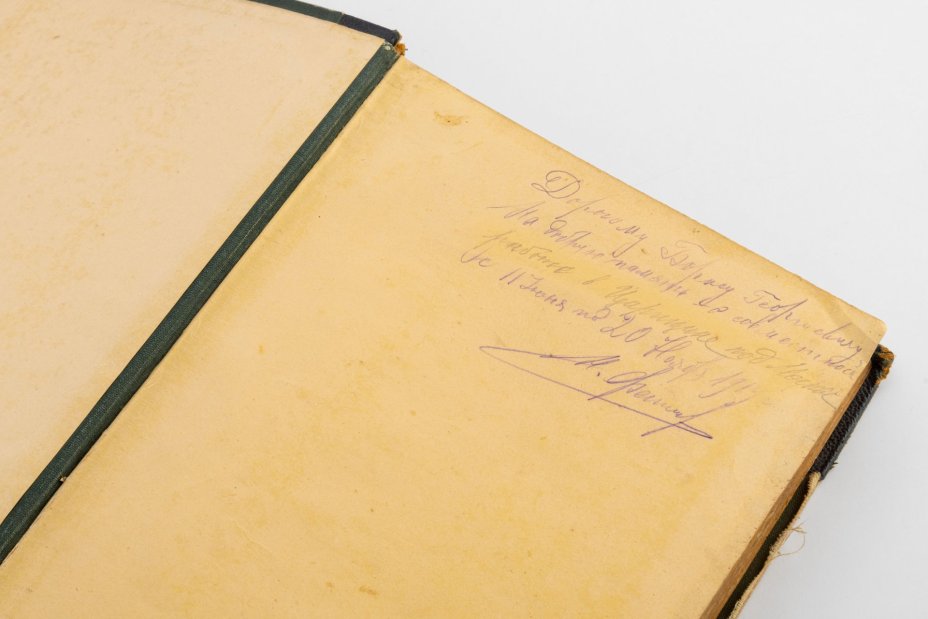 Дорогому Борису Георгиевичу
На добрую память о совместной
работе в Царицыне
с 11 Июня по 20 Нояб. 191